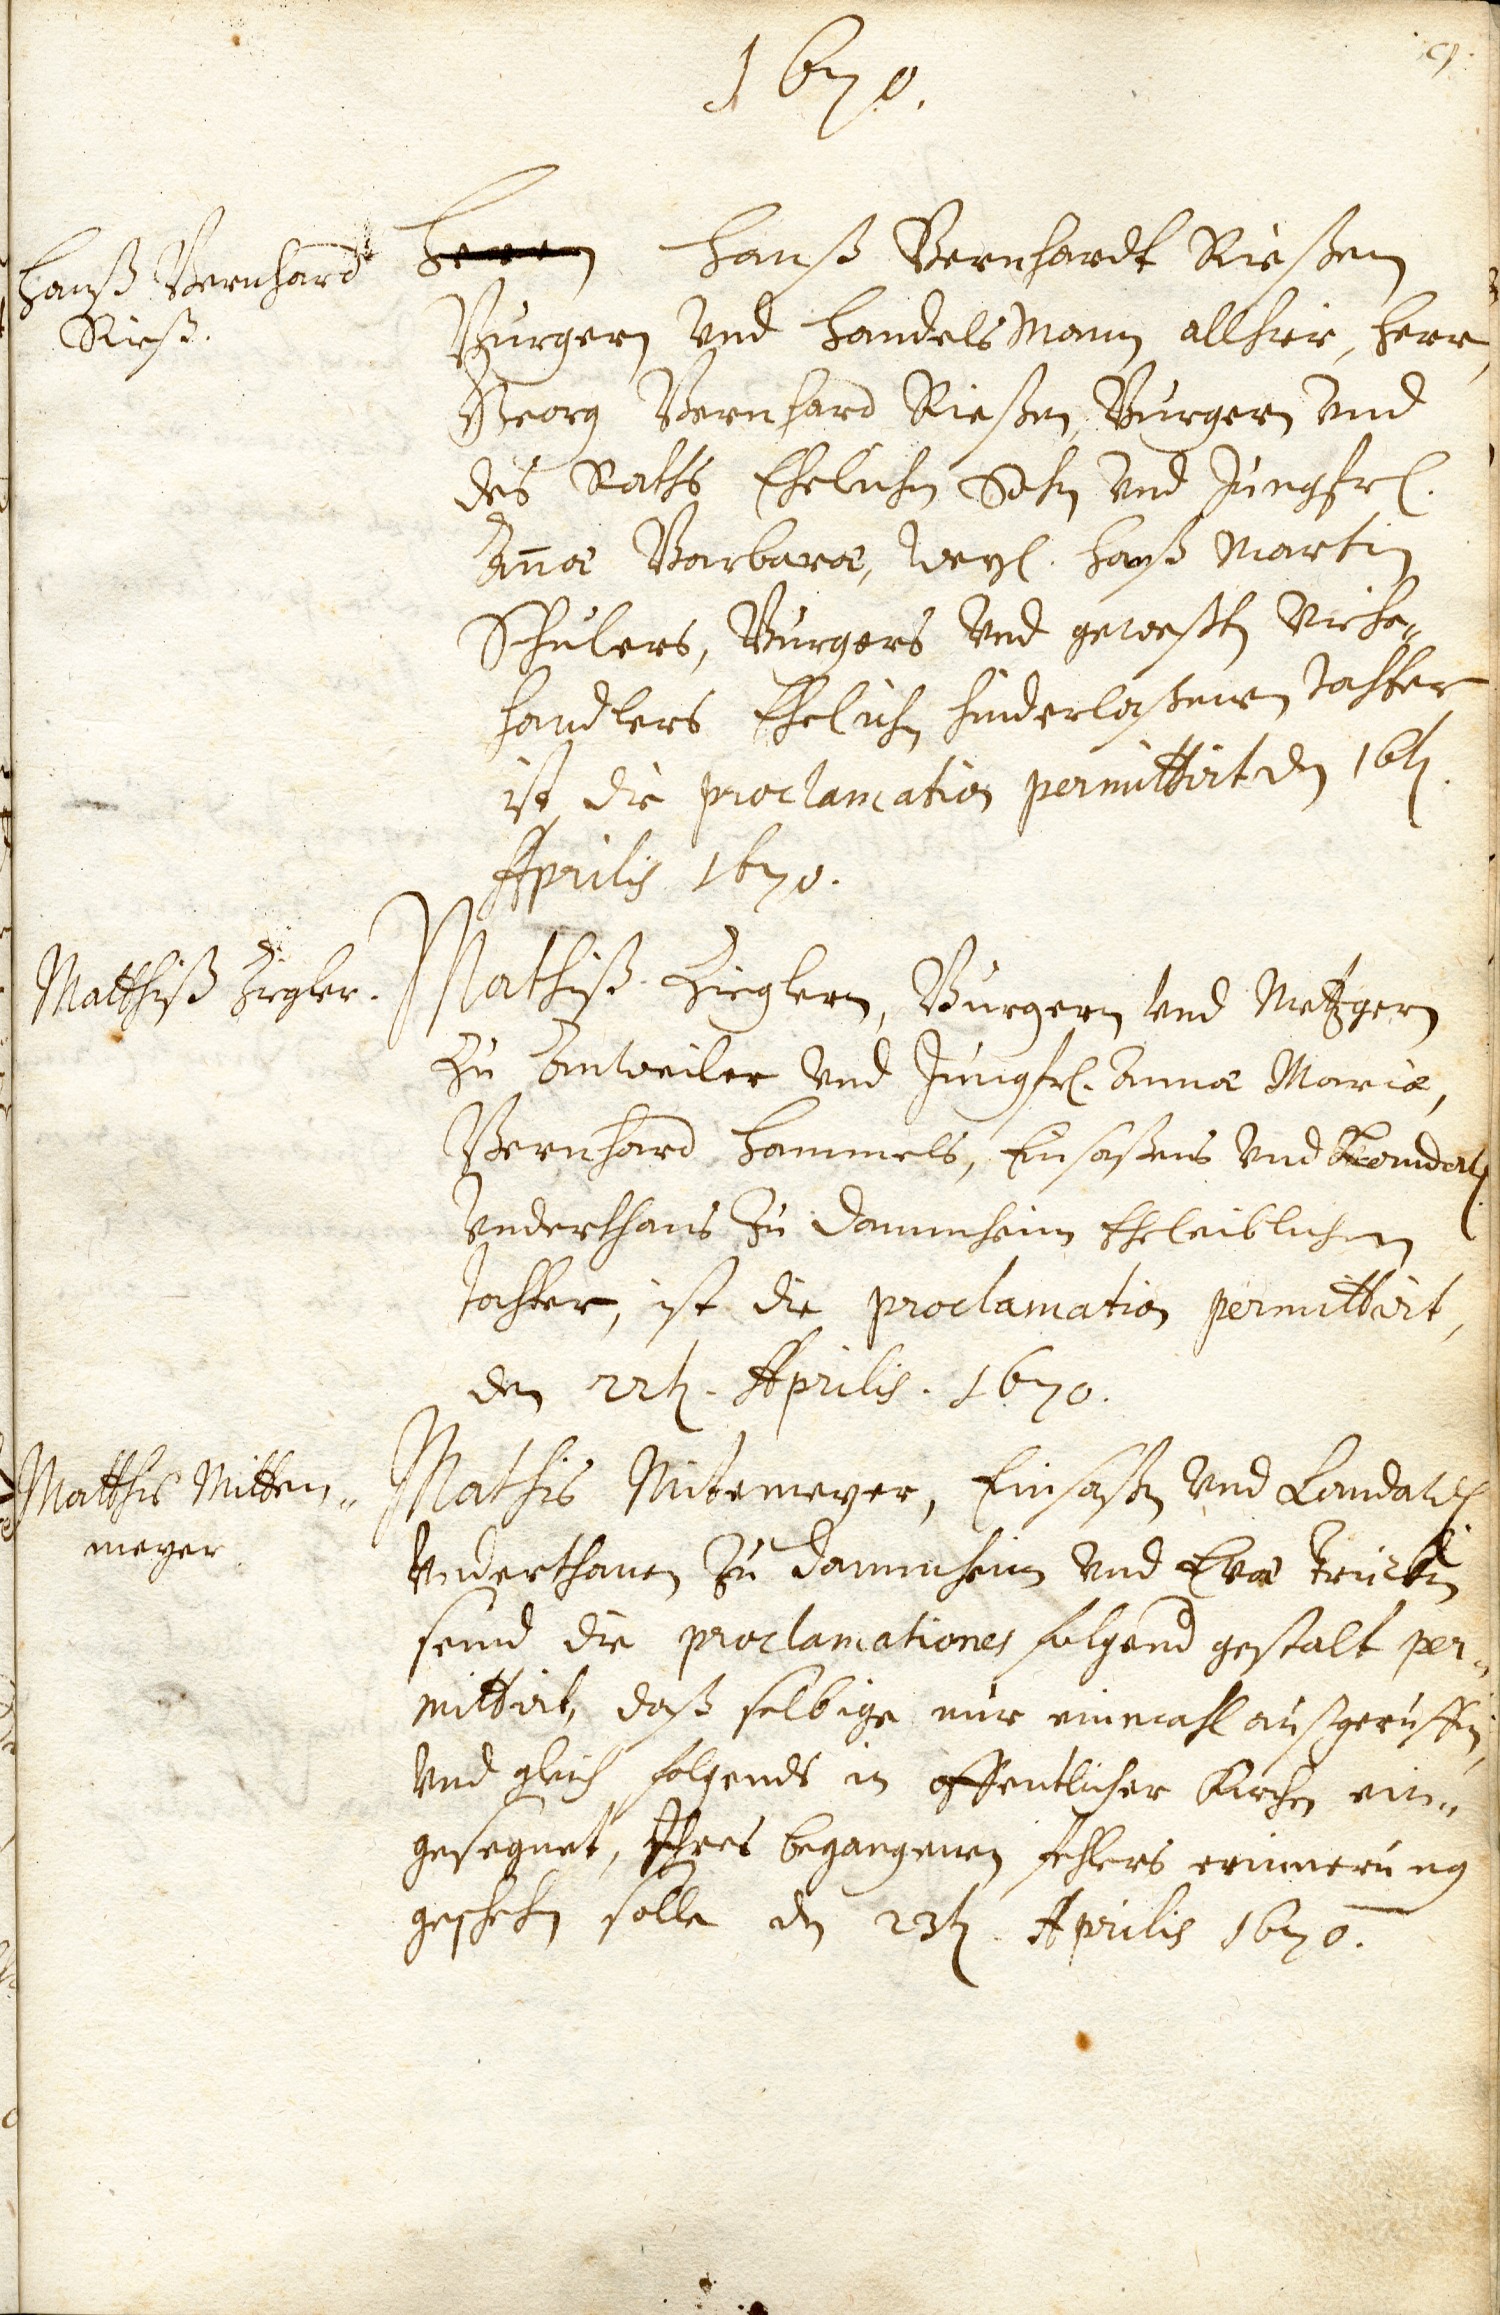 1670.
9.
Hanß Bernhardt
Rieß.
Herren Hanß Bernhardt Rießen
Burgern vnd HandelsMann allhier, Herr
Georg Bernhard Rießen, Burgern vnd
des Raths Ehelichen Sohn vnd Jungfrl.
Annæ Barbaræ, weyl. Hanß Martin
Schulers, Burgers vnd geweßten Viehe„
handlers Ehelichen hinderlaßenen Tochter
ist die proclamation permittirt den 16tn.
Aprilis 1670.
Matthiß Ziegler.
Mathiß Zieglern, Burgern vnd Metzgern
zu Anweiler vnd Jungfrl. Annæ Mariæ,
Bernhard Hammels, Einsaßens vnd Landaul.
Vnderthans zu Dammheim Eheleiblichen
Tochter, ist die proclamation permittirt,
den 22tn. Aprilis. 1670.
Matthis Mitten„
meyer.
Mathis Mitemeyer, Einsaßen vnd Landaul.
Vnderthanen zu Dammheim vnd Evæ
seind die proclamationes folgend gestalt per„
mittirt, daß selbige nur einmahl außgeruffen,
vnd gleich folgends in offentlicher Kirchen ein„
gesegnet, Ihres begangenen fehlers erinnerung
geschehen solle den 23tn. Aprilis 1670.